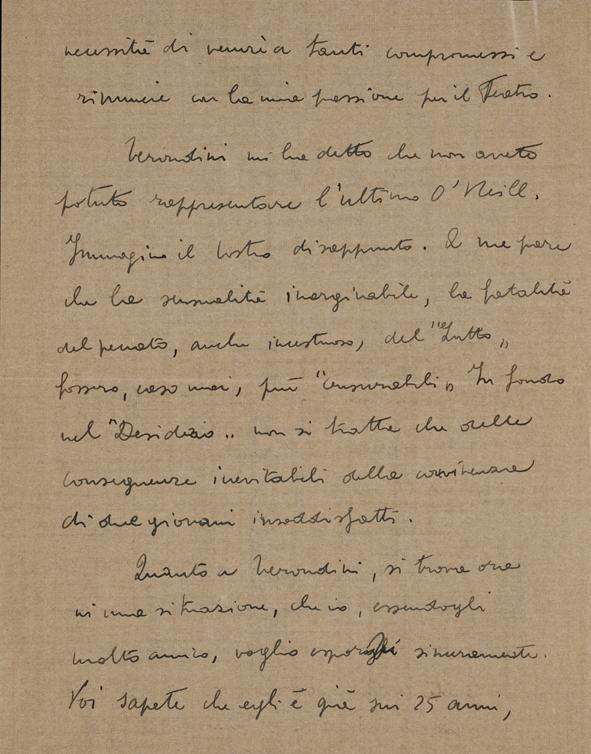 necessità di venire a tanti compromessi e
rinuncie con la mia passione per il Teatro.
Verondini mi ha detto che non avete
potuto rappresentare l'ultimo O'Neill.
Immagino il Vostro disappunto. A me pare
che la sensualità inarginabile, la fatalità
del peccato, anche incestuoso, del "Lutto"
fossero, caso mai, più "censurabili" In fondo
nel "Desiderio" non si tratta che delle
conseguenze inevitabili della convivenza
di due giovani insoddisfatti.
Quanto a Verondini, si trova ora
in una situazione, che io, essendogli
molto amico, voglio esporVi sinceramente.
Voi sapete che egli è già sui 25 anni,